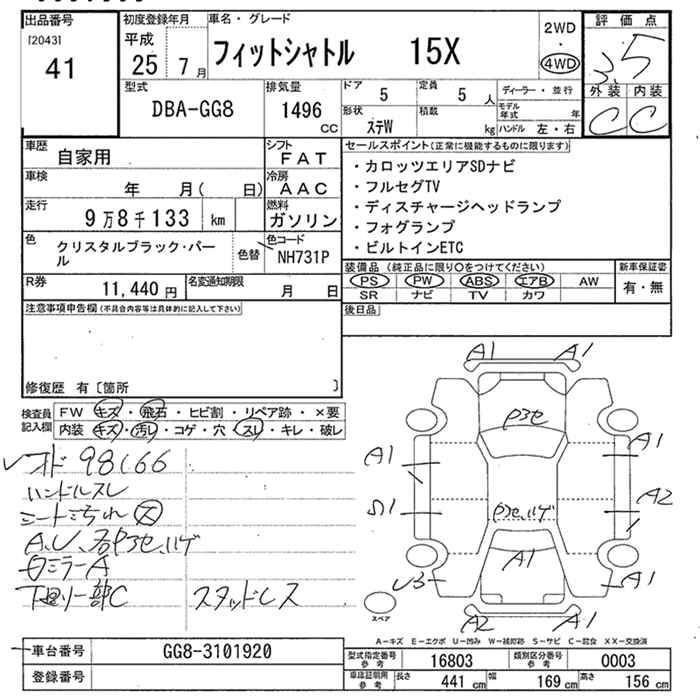 出品番号 初度登録年月 車名・グレード 評価点
[2043] 41
平成 25 7月
フィットシャトル 15X
2WD ・ 4WD
3.5
外装 内装
C C
型式 DBA-GG8
排気量 1496 cc
ドア 5 定員 5人
形状 ステW 積載 kg
ディーラー・並行
モデル年式 年
ハンドル 左・右
車歴 自家用
シフト FAT
車検 年 月( 日)
冷房 AAC
走行 9万8千133 km
燃料 ガソリン
色 クリスタルブラック・パール
色替
色コード NH731P
R券 11,440円
名変通知期限 月 日
セールスポイント(正常に機能するものに限ります)
・カロッツエリアSDナビ
・フルセグTV
・ディスチャージヘッドランプ
・フォグランプ
・ビルトインETC
装備品(純正品に限り○をつけてください) 新車保証書
PS PW ABS エアB AW 有・無
SR ナビ TV カワ
後日品
注意事項申告欄(不具合内容等は具体的に記入して下さい)
修復歴 有〔箇所 〕
検査員記入欄
FW キズ・飛石・ヒビ割・リペア跡・×要
内装 キズ・汚レ・コゲ・穴・スレ・キレ・破レ
98166
ハンドルスレ
シートよごれ 大
ミラーA
下廻り一部C スタッドレス
A1 A1
A1 A1
A2
A1
A1
A2 A1
スペア
A−キズ E−エクボ U−凹み W−補修跡 S−サビ C−腐食 XX−交換済
車台番号 GG8-3101920
登録番号
型式指定番号 参考 16803 類別区分番号 参考 0003
車庫証明用 参考 長さ 441cm 幅 169cm 高さ 156cm